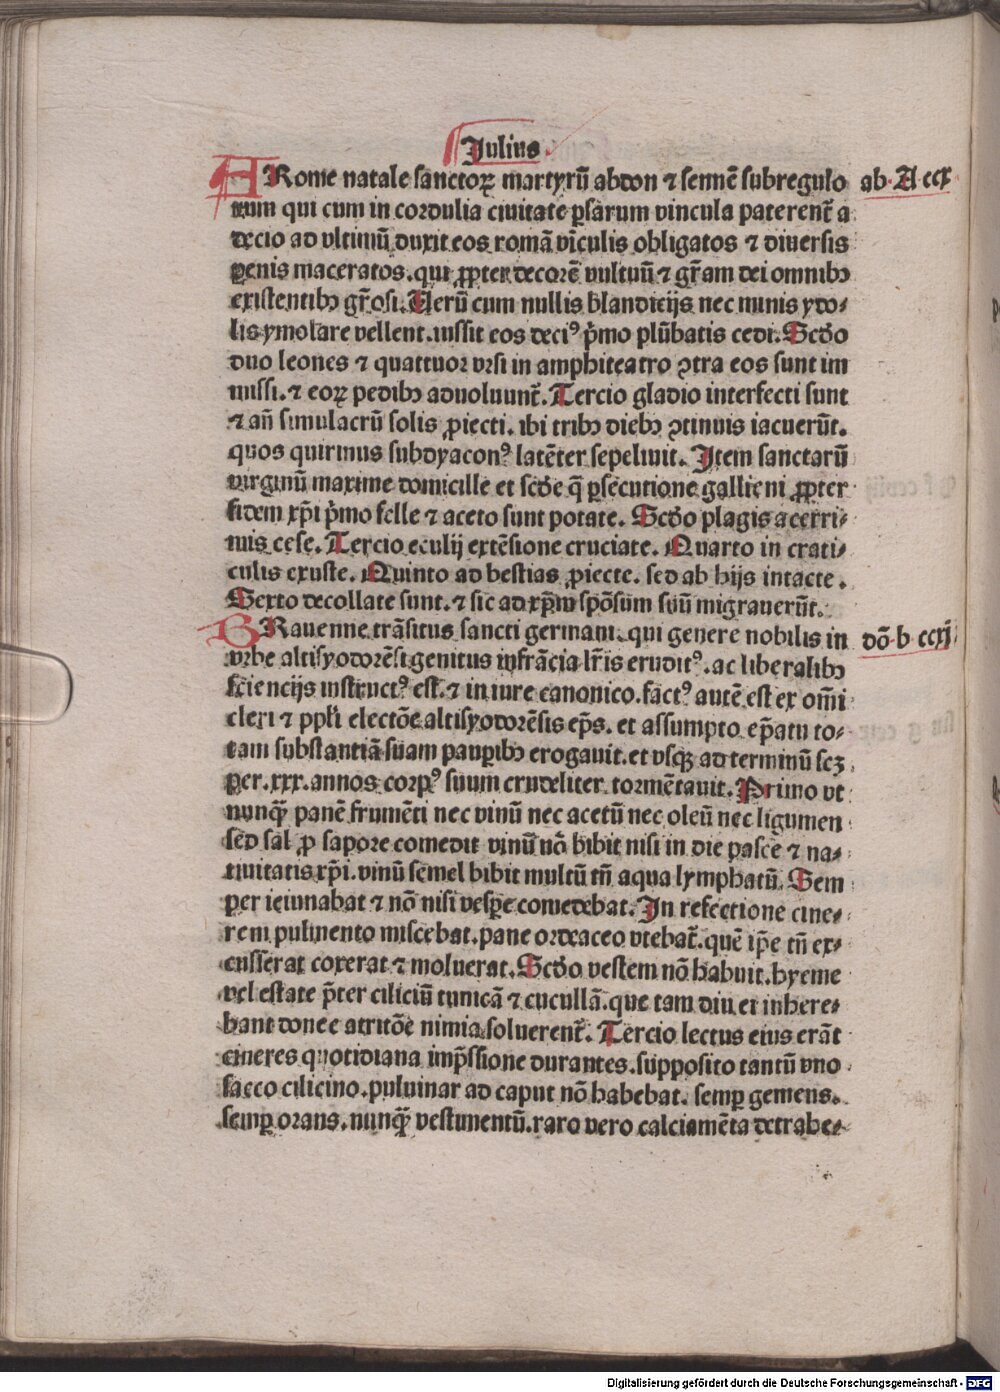 Julius.
A Rome natale sanctoꝝ martyrū abdon ⁊ sennē subregulo ab A ccx
rum qui cum in cordulia ciuitate ꝑsarum vincula paterent̄ a
decio ad vltimū duxit eos romā vīculis obligatos ⁊ diuersis
penis maceratos. qui ꝓpter decorē vultuū ⁊ gr̄am dei omnibꝫ
existentibꝫ gr̄osi. Uerū cum nullis blandicijs nec minis ydo⸗
lis ymolare vellent. iussit eos deciꝰ p̄mo plūbatis cedi. Scd̄o
duo leones ⁊ quattuor vrsi in amphiteatro ꝯtra eos sunt im
missi. ⁊ eoꝝ pedibꝫ aduoluunt̄. Tercio gladio interfecti sunt
⁊ an̄ simulacrū solis ꝓiecti. ibi tribꝫ diebꝫ ꝯtinuis iacuerūt.
quos quirinus subdyaconꝰ latēter sepeliuit. Item sanctarū
virginū maxime domicille et scd̄e q̄ ꝑsecutione gallieni ꝓpter
fidem xp̄i p̄mo felle ⁊ aceto sunt potate. Scd̄o plagis acerri⸗
mis cese. Tercio eculij extēsione cruciate. Quarto in crati⸗
culis exuste. Quinto ad bestias ꝓiecte. sed ab hijs intacte.
Sexto decollate sunt. ⁊ sic ad xp̄m spōsum suū migrauerūt.
B Rauenne trāsitus sancti germani. qui genere nobilis in dō b ccxj
vrbe altisyodorēsi genitus infrācia lr̄is eruditꝰ. ac liberalibꝫ
sciencijs instructꝰ est. ⁊ in iure canonico. factꝰ autē est ex om̄i
cleri ⁊ ppl̄i electōe altisyodorēsis ep̄s. et assumpto ep̄atu to⸗
tam substantiā suam pauꝑibꝫ erogauit. et vsqꝫ ad terminū scꝫ
per .xxx. annos corpꝰ suum crudeliter tormētauit. Primo vt
nunqꝫ̄ panē frumēti nec vinū nec acetū nec oleū nec ligumen
sed sal ꝓ sapore comedit vinū nō bibit nisi in die pasce ⁊ na⸗
tiuitatis xp̄i. vinū semel bibit multū tn̄ aqua lymphatū. Sem
per ieiunabat ⁊ nō nisi vesꝑe comedebat. In refectione cine⸗
rem pulmento miscebat. pane ordeaceo vtebat̄. quē ip̄e tn̄ ex⸗
cusserat coxerat ⁊ moluerat. Scd̄o vestem nō habuit. hyeme
vel estate p̄ter ciliciū tunicā ⁊ cucullā. que tam diu ei inhere⸗
bant donec atritōe nimia soluerent̄. Tercio lectus eius erāt
cineres quotidiana imp̄ssione durantes. supposito tantū vno
sacco cilicino. puluinar ad caput nō habebat. semꝑ gemens.
semꝑ orans. nunqꝫ̄ vestimentū. raro vero calciamēta detrahe⸗
Digitalisierung gefördert durch die Deutsche Forschungsgemeinschaft - DFG